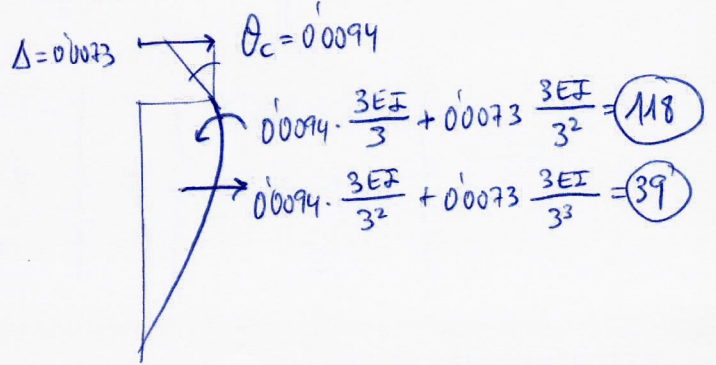 Δ=0'0073
θc = 0'0094
0'0094 · 3EI/3 + 0'0073 3EI/3² = 118
0'0094 · 3EI/3² + 0'0073 3EI/3³ = 39'